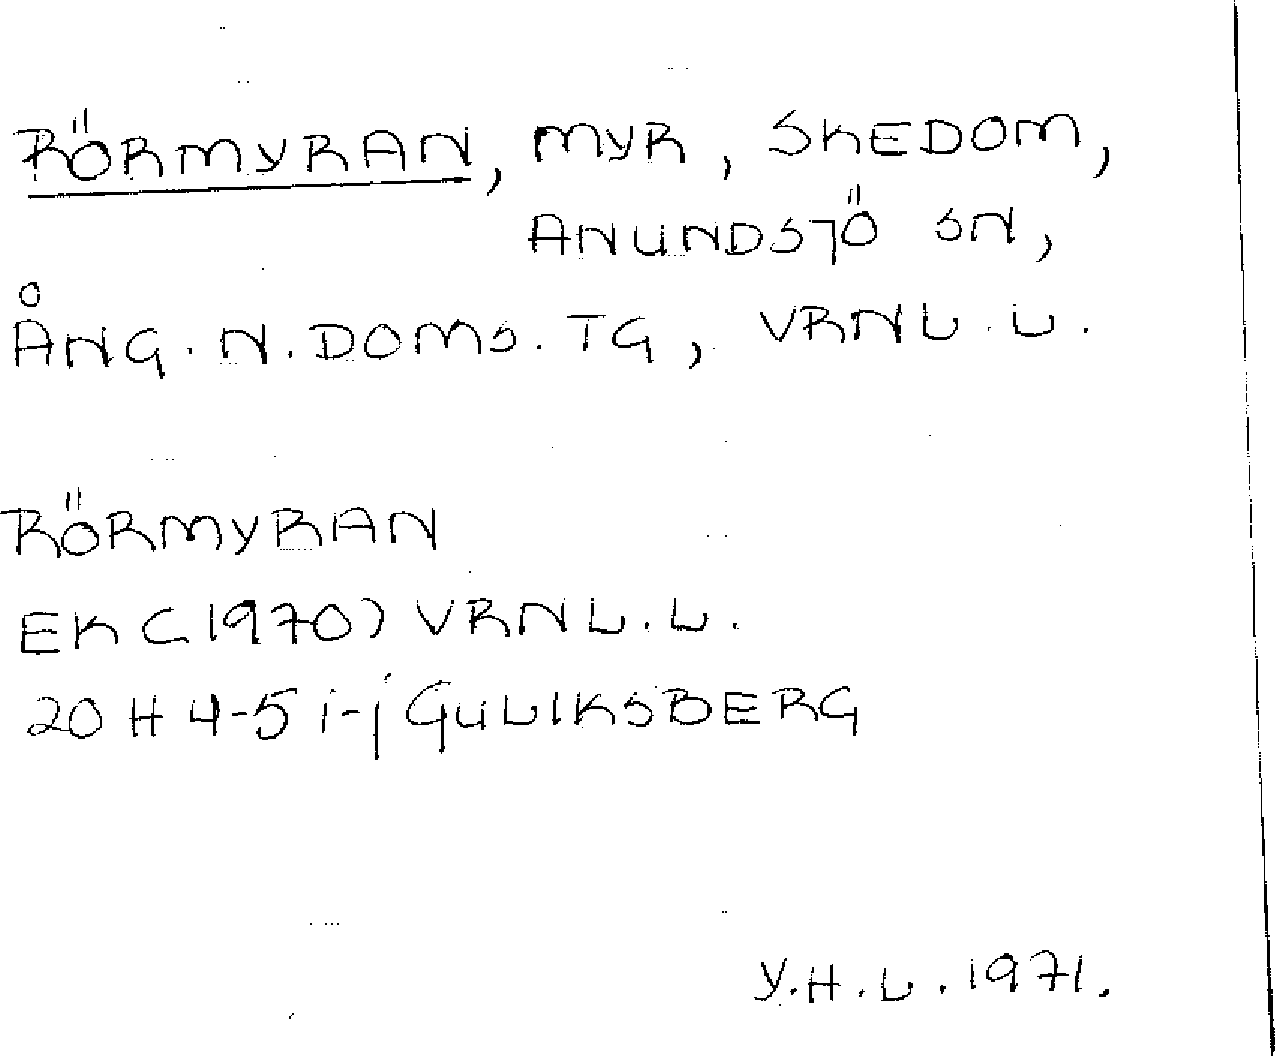 RÖRMYRAN, MYR, SKEDOM,
ANUNDSJÖ SN,
ÅNG. N. DOMS. TG, VRNL. L.
RÖRMYRAN
EK (1970) VRNL. L.
20 H 4-5 i-j GULIKSBERG
Y.H.L. 1971.